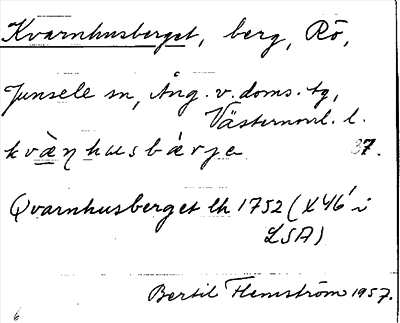 Kvarnhusberget, berg, Rö,
Junsele sn, Ång. v. doms. tg,
Västernorrl. l.
kvæ̀ŋhusbárje 37.
Qvarnhusberget lk 1752 (X46' i
LSA)
Bertil Flemström 1957.
6